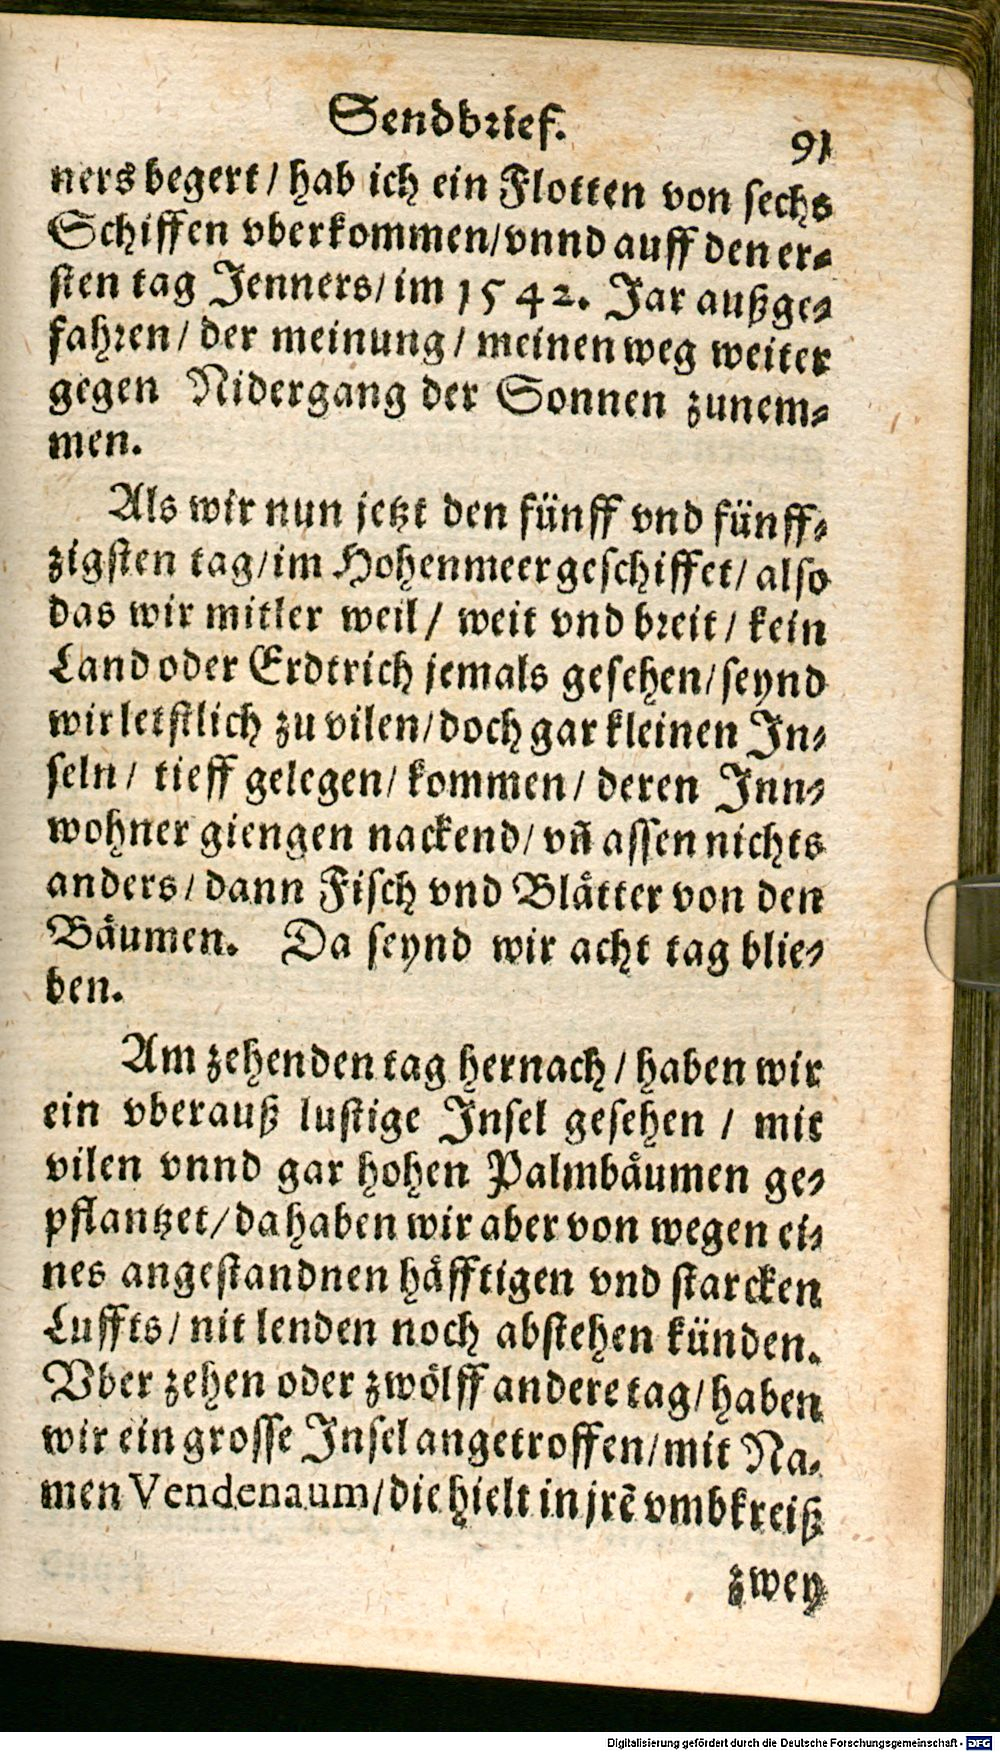 Sendbrief.
91
ners begert / hab ich ein Flotten von sechs
Schiffen vberkommen/vnnd auff den er-
sten tag Jenners/im 1542. Jar außge-
fahren / der meinung / meinen weg weiter
gegen Nidergang der Sonnen zunem-
men.
Als wir nun jetzt den fünff vnd fünff-
zigsten tag/im Hohenmeer geschiffet/ also
das wir mitler weil / weit vnd breit / kein
Land oder Erdtrich jemals gesehen/seynd
wir letstlich zu vilen/doch gar kleinen In-
seln / tieff gelegen/ kommen / deren Inn-
wohner giengen nackend/ vñ assen nichts
anders/dann Fisch vnd Blätter von den
Bäumen. Da seynd wir acht tag blie-
ben.
Am zehenden tag hernach / haben wir
ein vberauß lustige Insel gesehen / mit
vilen vnnd gar hohen Palmbäumen ge-
pflantzet/da haben wir aber von wegen ei-
nes angestandnen häfftigen vnd starcken
Luffts/nit lenden noch abstehen künden.
Vber zehen oder zwölff andere tag/haben
wir ein grosse Insel angetroffen/mit Na-
men Vendenaum/die hielt in jrē vmbkreiß
zwey
Digitalisierung gefördert durch die Deutsche Forschungsgemeinschaft - DFG